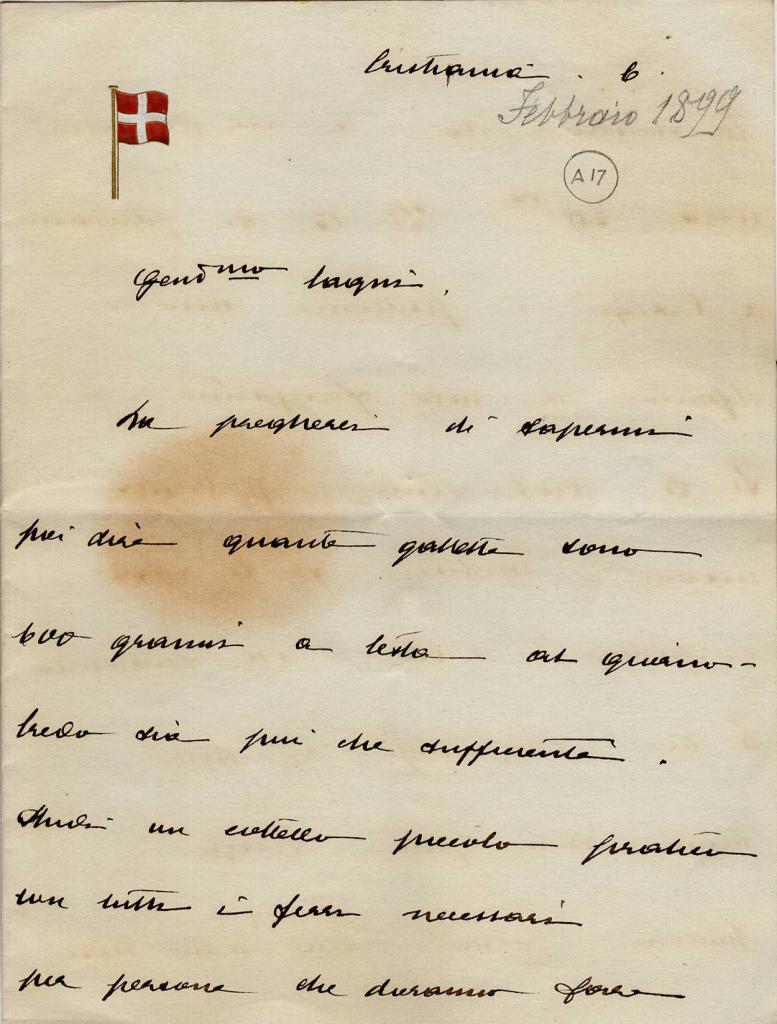 Cristiania. 6.
Febbraio 1899
A 17
Gent mo Cagni.
La pregherei di sapermi
poi dire quante gallette sono
600 grammi a testa al giorno -
credo sia piu che sufficiente.
Studi un coltello piccolo pratico
con tutti i ferri necessari
per persone che dovranno fare